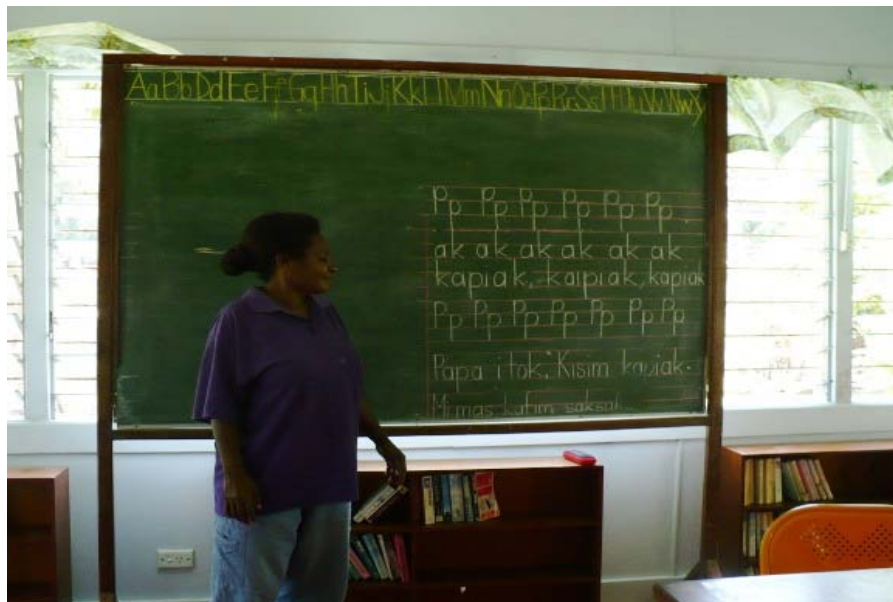 Aa Bb Dd Ee Ff Gg Hh Ii Jj Kk Ll Mm Nn Oo Pp Rr Ss Tt Uu Vv Ww Y
Pp Pp Pp Pp Pp Pp
ak ak ak ak ak ak
kapiak, kaipiak, kapiak
Pp Pp Pp Pp Pp Pp Pp
Papa i tok, "Kisim kapiak.
Mi mas katim saksak